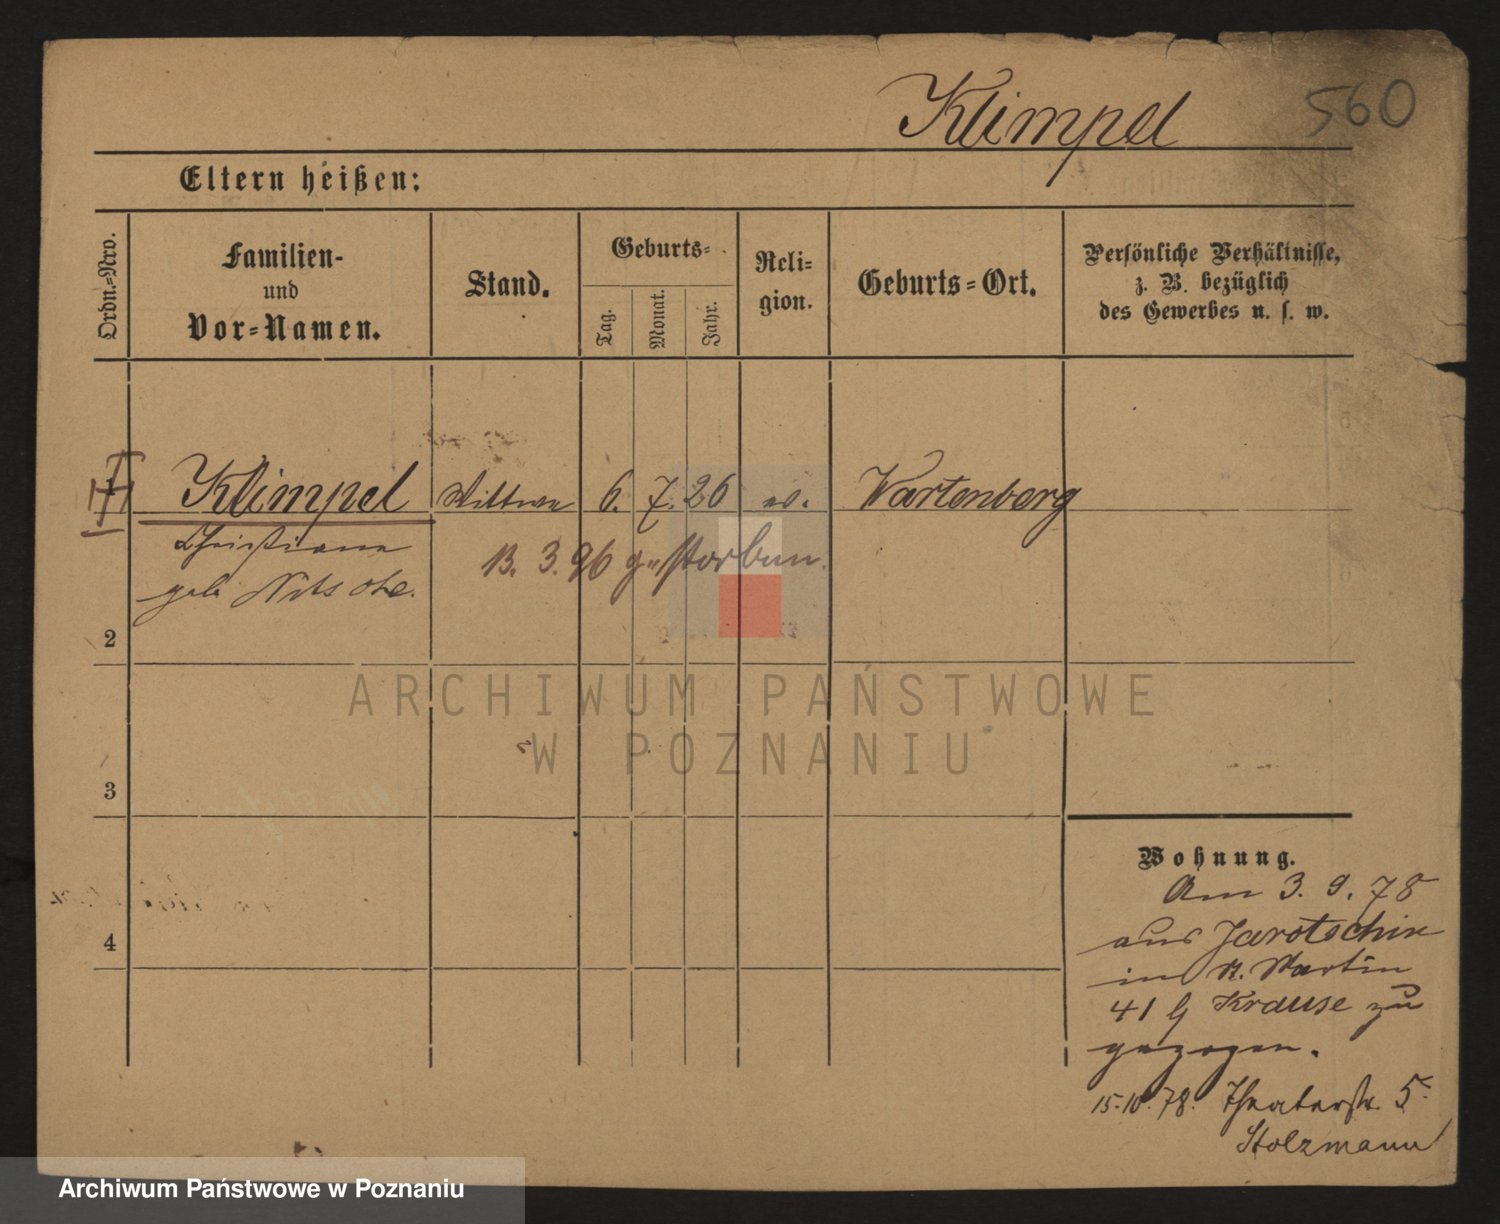 Klimpel 560
Eltern heißen:
Ordn.-Nro.
Familien-
und
Vor-Namen.
Stand.
Geburts-
Tag.
Monat.
Jahr.
Reli-
gion.
Geburts-Ort.
Persönliche Verhältnisse,
z. B. bezüglich
des Gewerbes u. s. w.
Klimpel Wittwe 6. 7. 26 ev. Wartenberg
Christiane
geb Nitsche.
13. 3. 96 gestorben.
2
3
4
Wohnung.
Am 3. 9. 78
aus Jarotschin
in St. Martin
41 b Krause zu
gezogen.
15.10.78. Theaterstr. 5
Stolzmann
ARCHIWUM PAŃSTWOWE
W POZNANIU
Archiwum Państwowe w Poznaniu